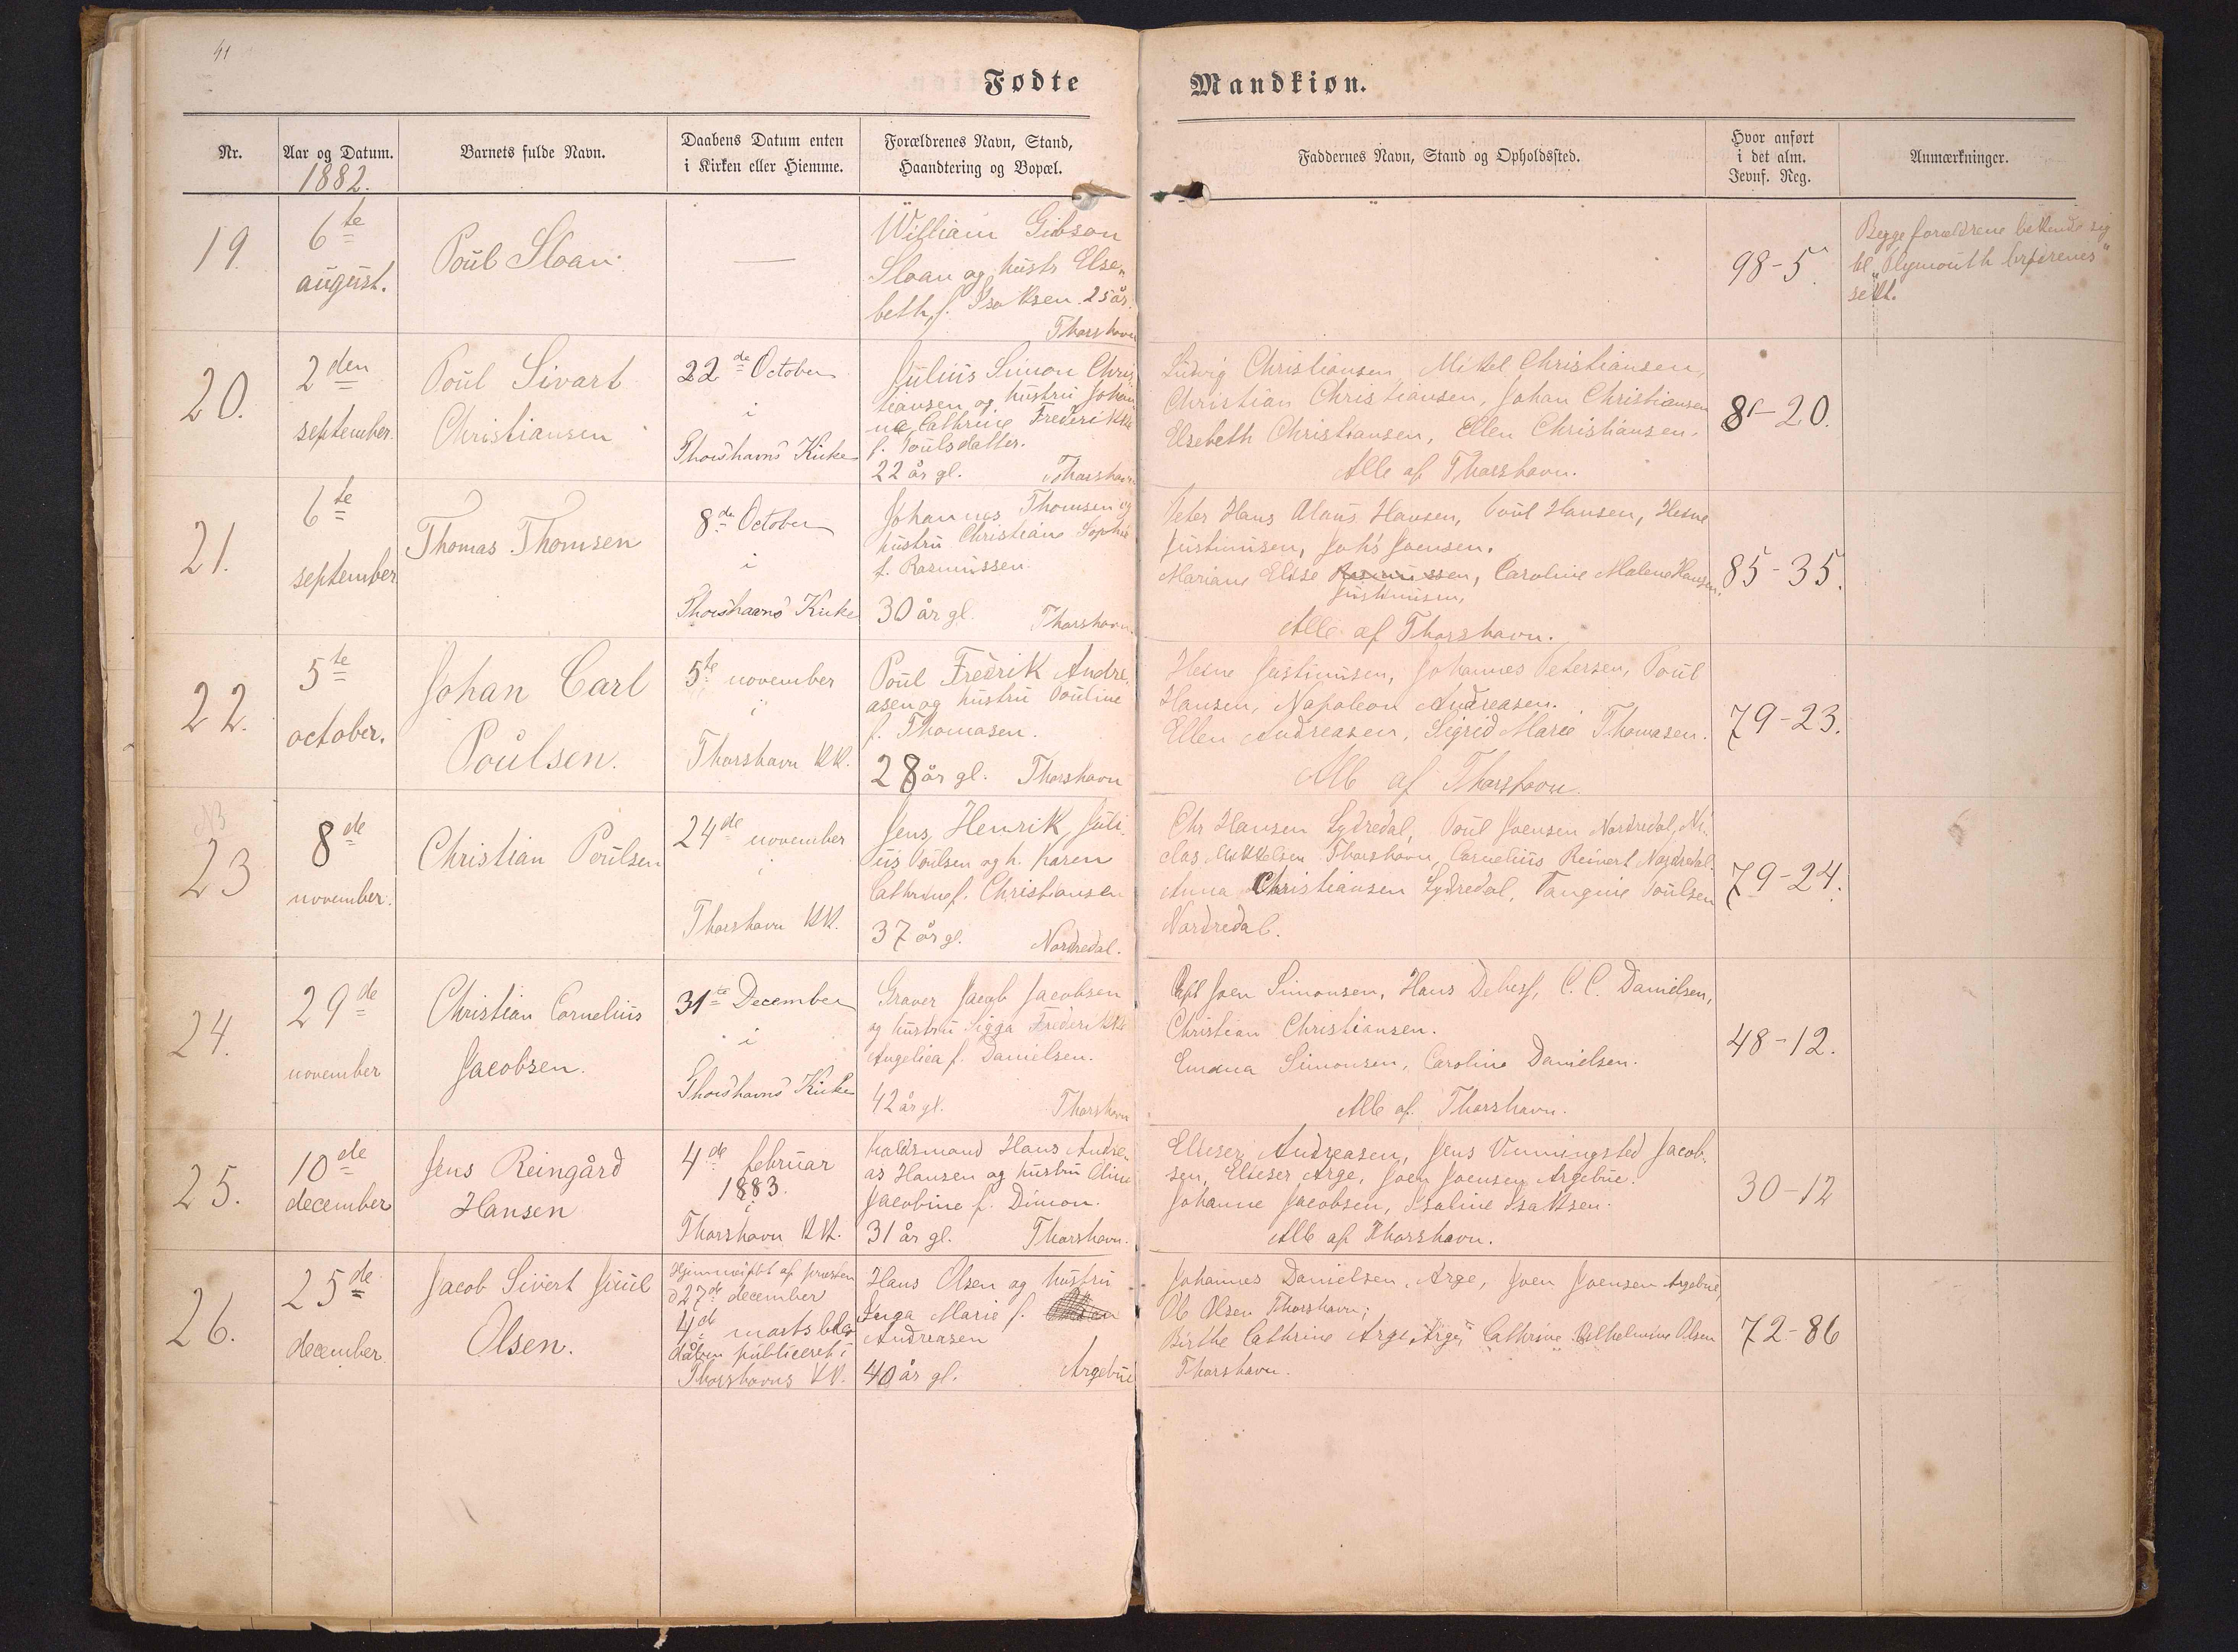 41
Fødte Mandkiøn.
Nr.
Aar og Datum.
1882.
Barnets fulde Navn.
Daabens Datum enten
i Kirken eller Hiemme.
Forældrenes Navn, Stand,
Haandtering og Bopæl.
Faddernes Navn, Stand og Opholdssted.
Hvor anført
i det alm.
Jevnf. Reg.
Anmærkninger.
19.
6te
august.
Poul Sloan.
—
William Gibson
Sloan og hustr Else-
beth, f. Isaksen 25 år.
Thorshavn
98-5
Begge forældrene bekende sig
til „Plymouth brørenes“
sekt.
20.
2den
september.
Poul Sivart
Christiansen
22de October
i
Thorshavns Kirke
Julius Simon Chris
tiansen og hustru Johan
na Cathrine Frederikke
f. Poulsdatter.
22 år gl. Thorshavn
Ludvig Christiansen, Mikkel Christiansen,
Christian Christiansen, Johan Christiansen
Elsebeth Christiansen, Ellen Christiansen.
Alle af Thorshavn.
81-20.
21.
6te
september
Thomas Thomsen
8de October
i
Thorshavns Kirke
Johannes Thomsen og
hustru Christiane Sophie
f. Rasmussen.
30 år gl. Thorshavn.
Peter Hans Claus Hansen, Poul Hansen, Hesne
Justinusen, Johs Joensen.
Mariane Elsse Rasmussen, Caroline Malene Hansen.
Justinusen,
Alle af Thorshavn.
85-35.
22.
5te
october.
Johan Carl
Poulsen.
5te november
i
Thorshavn KK.
Poul Fredrik Andre-
asen og hustru Pouline
f. Thomasen.
28 år gl. Thorshavn
Hesne Justinusen, Johannes Petersen, Poul
Hansen, Napoleon Andreasen.
Ellen Andreasen, Sigrid Marie Thomasen.
Alle af Thorshavn.
79-23.
NB
23
8de
november.
Christian Poulsen
24de november
i
Thorshavn KK.
Jens Henrik Juli-
us Poulsen og h. Karen
Cathrine f. Christiansen
37 år gl. Nordredal.
Chr Hansen Sydredal, Poul Joensen Nordredal, Ni-
clas Mikkelsen Thorshavn, Cornelius Reinert Nordredal.
Anna Christiansen Sydredal, Poulsen
Nordredal.
79-24.
24.
29de
november
Christian Cornelius
Jacobsen.
31te December
i
Thorshavns Kirke
Graver Jacob Jacobsen
og hustru Sigga Frederikke
Angelica f. Danielsen.
42 år gl. Thorshavn
Joen Simonsen, Hans Debess, C. C. Danielsen,
Christian Christiansen.
Emma Simonsen, Caroline Danielsen.
Alle af Thorshavn.
48-12.
25.
10de
december
Jens Reingård
Hansen
4de februar
1883.
i
Thorshavn KK.
Hans Andre-
as Hansen og hustru Eline
Jacobine f. Dimon.
31 år gl. Thorshavn.
Elieser Andreasen, Jens Vinningsted Jacob-
sen, Elieser Arge, Joen Joensen Argebue.
Johanne Jacobsen, Isaline Isaksen.
Alle af Thorshavn.
30-12
26.
25de
december
Jacob Sivert Juul
Olsen.
Hjemmedøbt af præsten
d 27de december
4de marts blev
dåben publiceret i
Thorshavns KK.
Hans Olsen og hustru
Inga Marie f.
Andreasen
40 år gl. Argebue
Johannes Danielsen, Arge, Joen Joensen Argebue,
Ole Olsen Thorshavn;
Birthe Cathrine Arge, Arge, Cathrine Vilhelmine Olsen
Thorshavn.
72-86